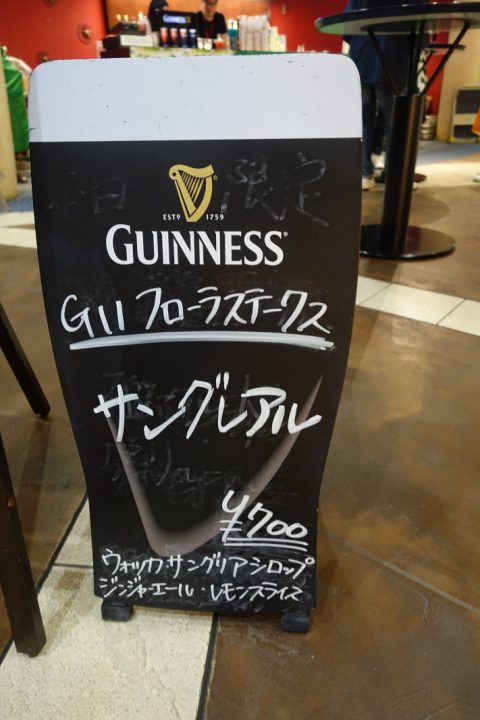 GUINNESS
毎日 限定
ESTD 1759
GUINNESS
GII フローラステークス
サングレアル
¥700
ウォッカ サングリアシロップ
ジンジャーエール・レモンスライス